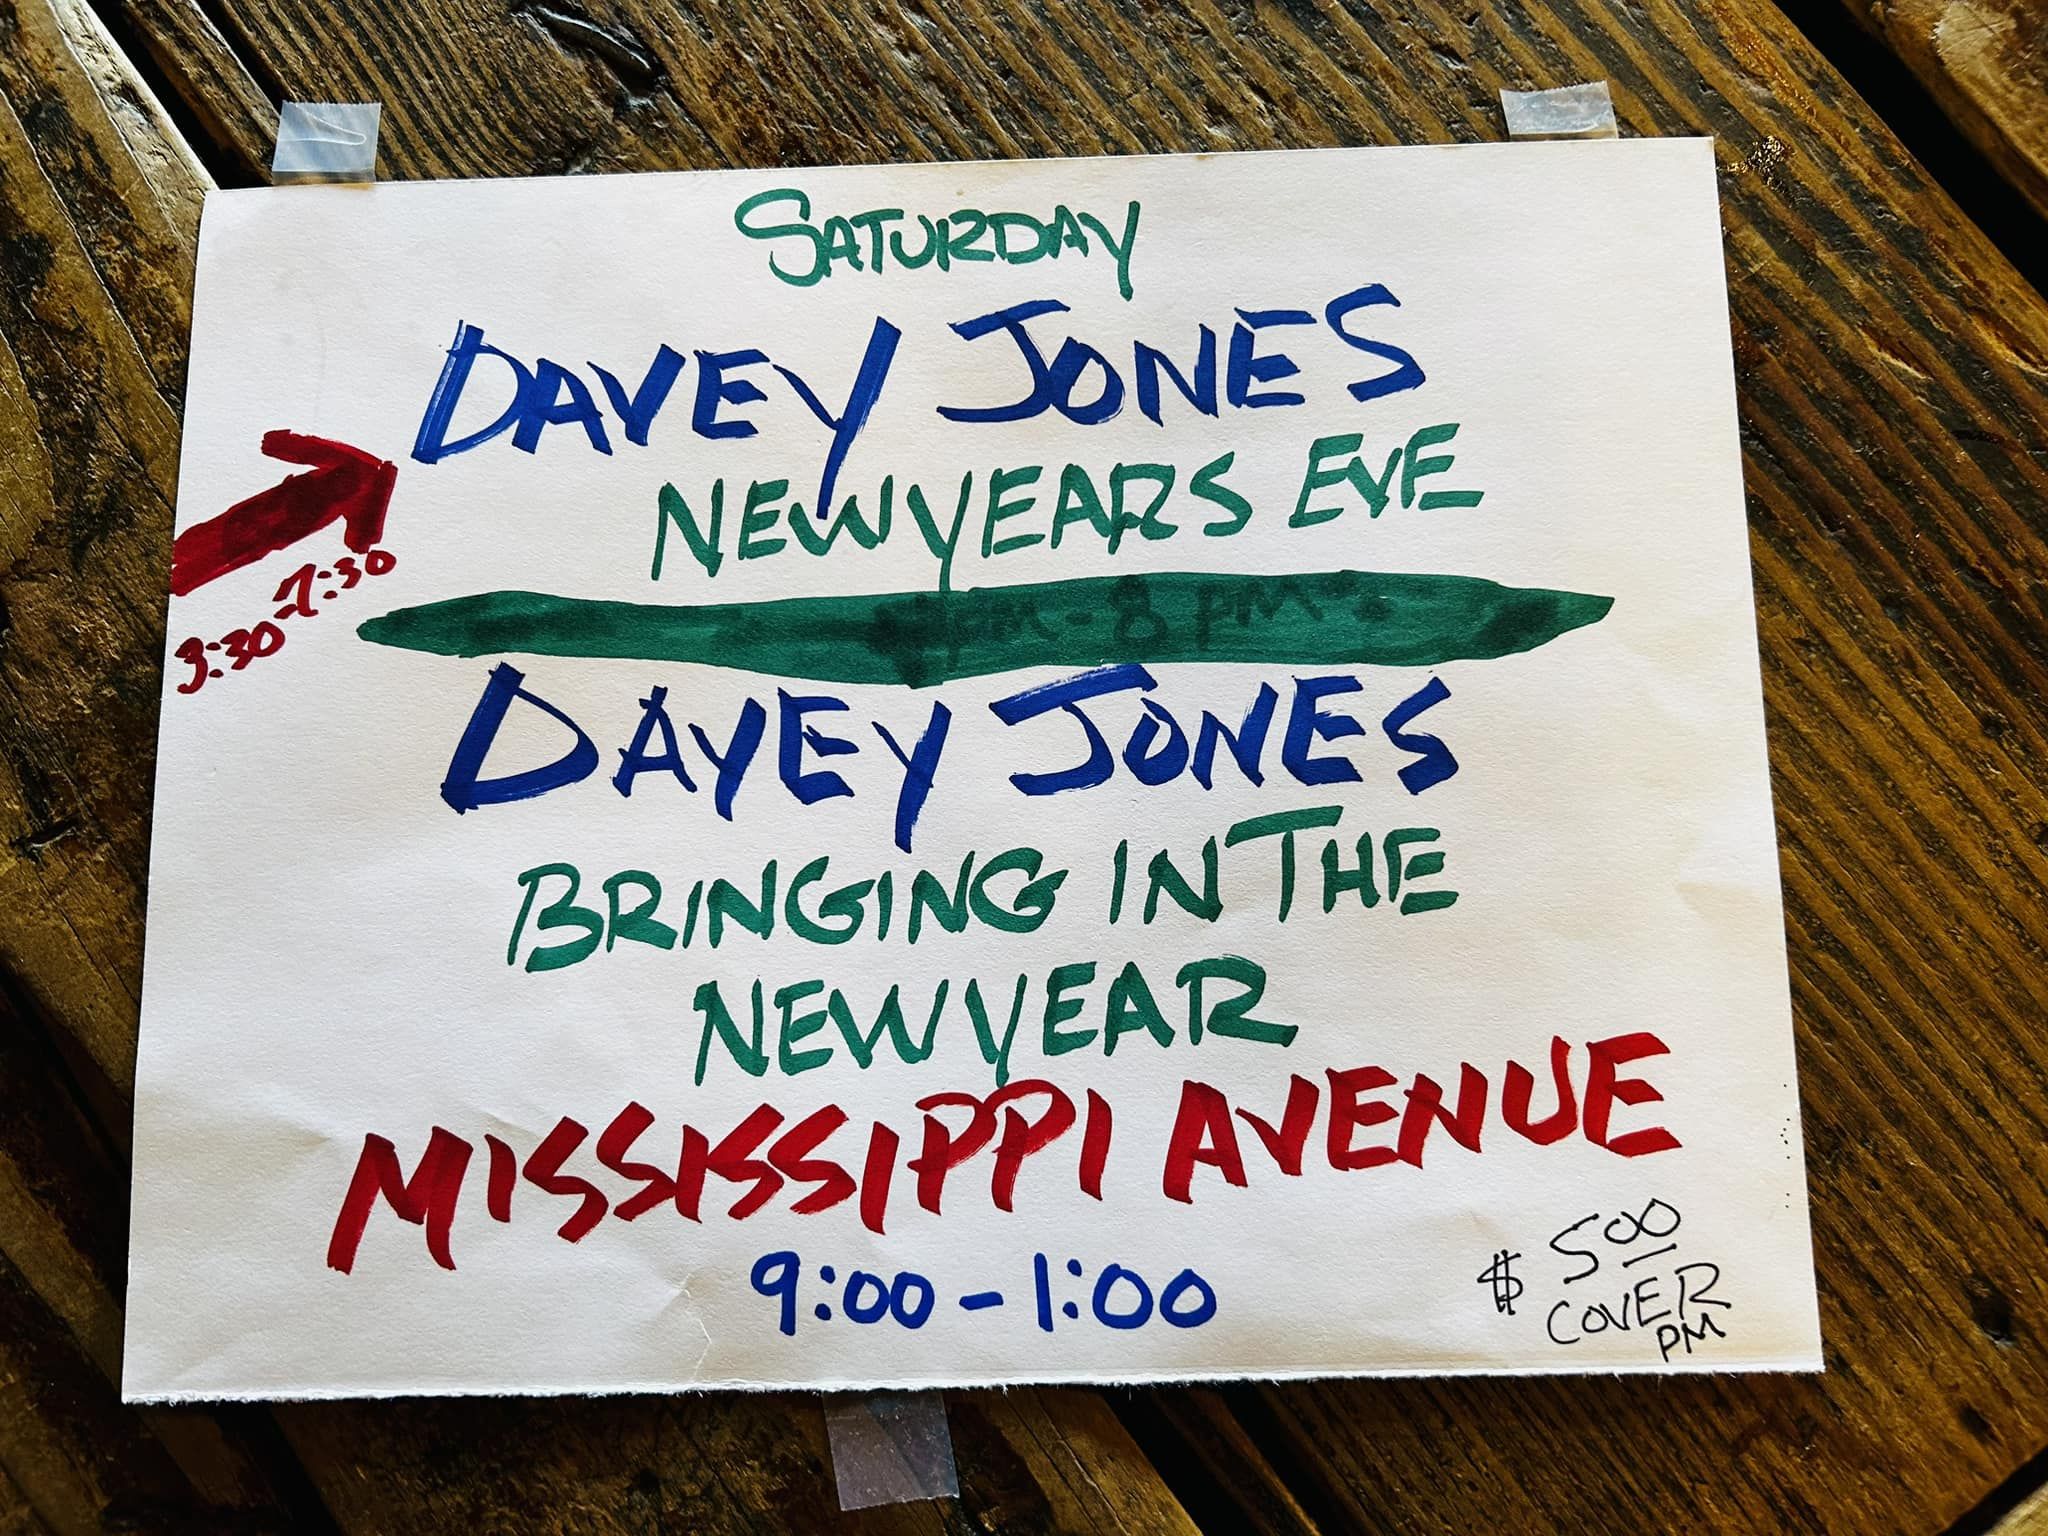 SATURDAY
DAVEY JONES
NEW YEARS EVE
3:30-7:30
PM-8 PM
DAVEY JONES
BRINGING IN THE
NEW YEAR
MISSISSIPPI AVENUE
9:00-1:00
$500
COVER
PM